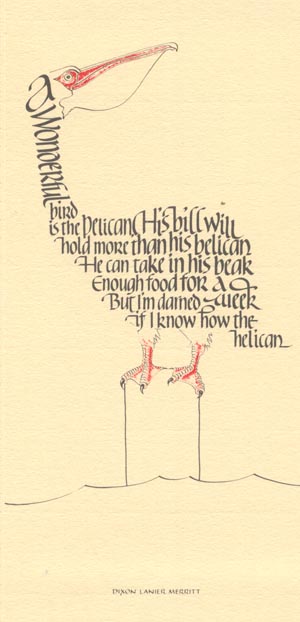 A Wonderful
bird
is the Pelican, His bill will
hold more than his belican.
He can take in his beak
Enough food for a
week
But I'm darned
if I know how the
helican
DIXON LANIER MERRITT